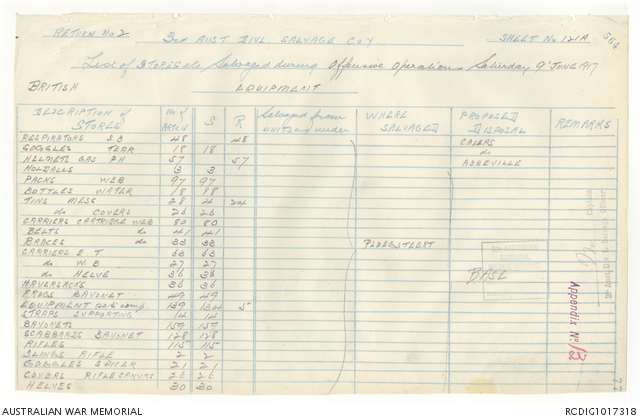 RETURN No 2 3rd AUST DIVL SALVAGE COY SHEET No 121A
List of STORES etc Salvaged during Offensive Operations Saturday 9th JUNE 1917
BRITISH EQUIPMENT
DESCRIPTION of STORES No of ARTICLES S R Salvaged from units as under WHERE SALVAGED PROPOSED DISPOSAL REMARKS
RESPIRATORS S B 48 48 CAIERS
GOGGLES TEAR 18 18 do
HELMETS GAS PH 57 57 ABBEVILLE
HOLDALLS 3 3
PACKS WEB 97 97
BOTTLES WATER 18 18
TINS MESS 28 4 24
do COVERS 26 26
CARRIERS CARTRIDGE WEB 80 80
BELTS do 41 41
BRACES do 33 33 PLOEGSTEERT
CARRIERS E T 63 63
do W B 27 27
do HELVE 36 36 BASE
HAVERSACKS 36 36
FROGS BAYONET 49 49
EQUIPMENT sets comp 139 134 5
STRAPS SUPPORTING 14 14
BAYONETS 157 157
SCABBARDS BAYONET 128 128
RIFLES 115 115
SLINGS RIFLE 2 2
GOGGLES SPICER 21 21
COVERS RIFLE CANVAS 26 26
HELVES 30 30
Captain
Appendix No 13
AUSTRALIAN WAR MEMORIAL RCDIG1017318